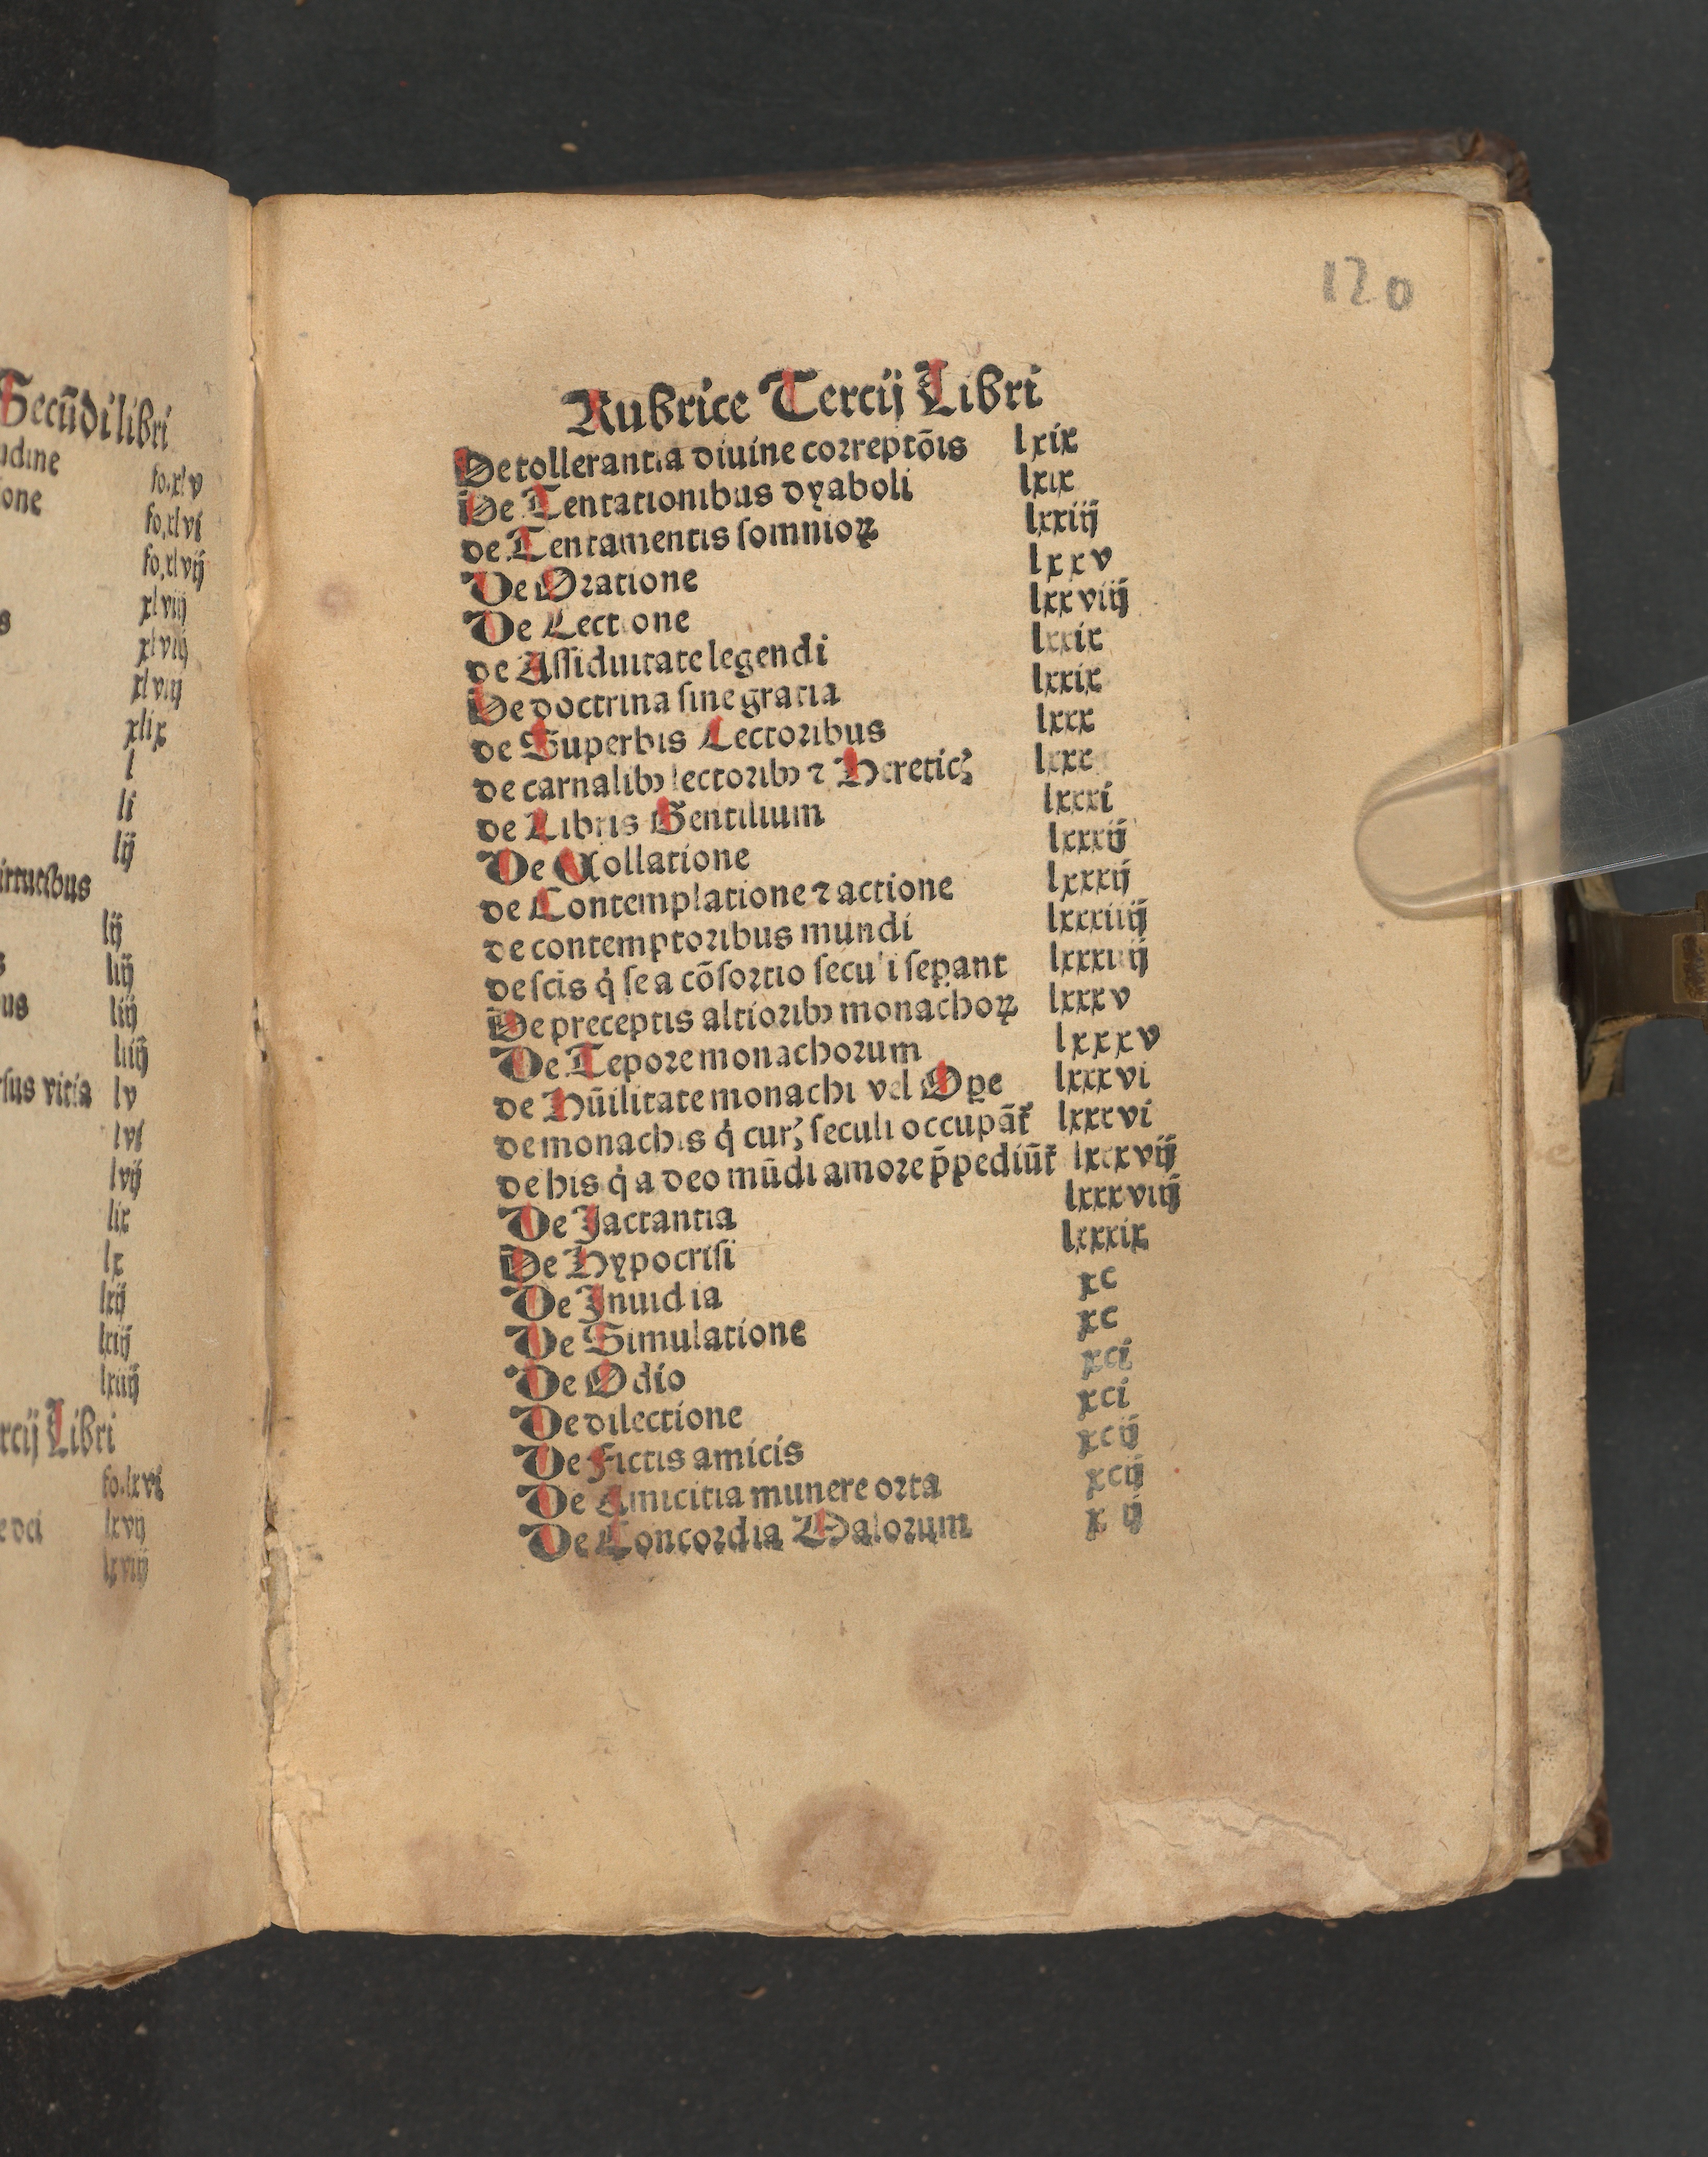 Secūdi libri
udine fo.xlv
ione fo.xlvi
fo.xlvij
xlviij
s xlviij
xlviij
xlix
l
li
lij
irtutibus
lij
s liij
us liij
liiij
rsus vitia lv
lvi
lvij
lix
lx
lxij
lxiij
lxiiij
rcij Libri
fo.lxvi
e dei lxvij
lxviij
120
Rubrice Tercij Libri
De tollerantia diuine correptōis lxix
De Tentationibus dyaboli lxix
de Tentamentis somnioꝝ lxxiij
De Oratione lxxv
De Lectione lxxviij
de Assiduitate legendi lxxix
De doctrina sine gratia lxxix
de Superbis Lectoribus lxxx
de carnalibꝰ lectoribꝰ ⁊ Heretic̛ lxxx
de Libris Gentilium lxxxi
De Collatione lxxxij
de Contemplatione ⁊ actione lxxxij
de contemptoribus mundi lxxxiiij
de scis q̇ se a cōsortio seculi seꝑant lxxxiiij
De preceptis altioribꝰ monachoꝝ lxxxv
De Tepore monachorum lxxxv
de Hūilitate monachi vel Oꝑe lxxxvi
de monachis q̇ cur̛ seculi occupāt᷑ lxxxvi
de his q̇ a deo mūdi amore p̄pediūt᷑ lxxxvij
De Jactantia lxxxviij
De Hypocrisi lxxxix
De Inuidia xc
De Simulatione xc
De Odio xci
De dilectione xci
De Fictis amicis xcij
De Amicitia munere orta xcij
De Concordia Malorum x ij